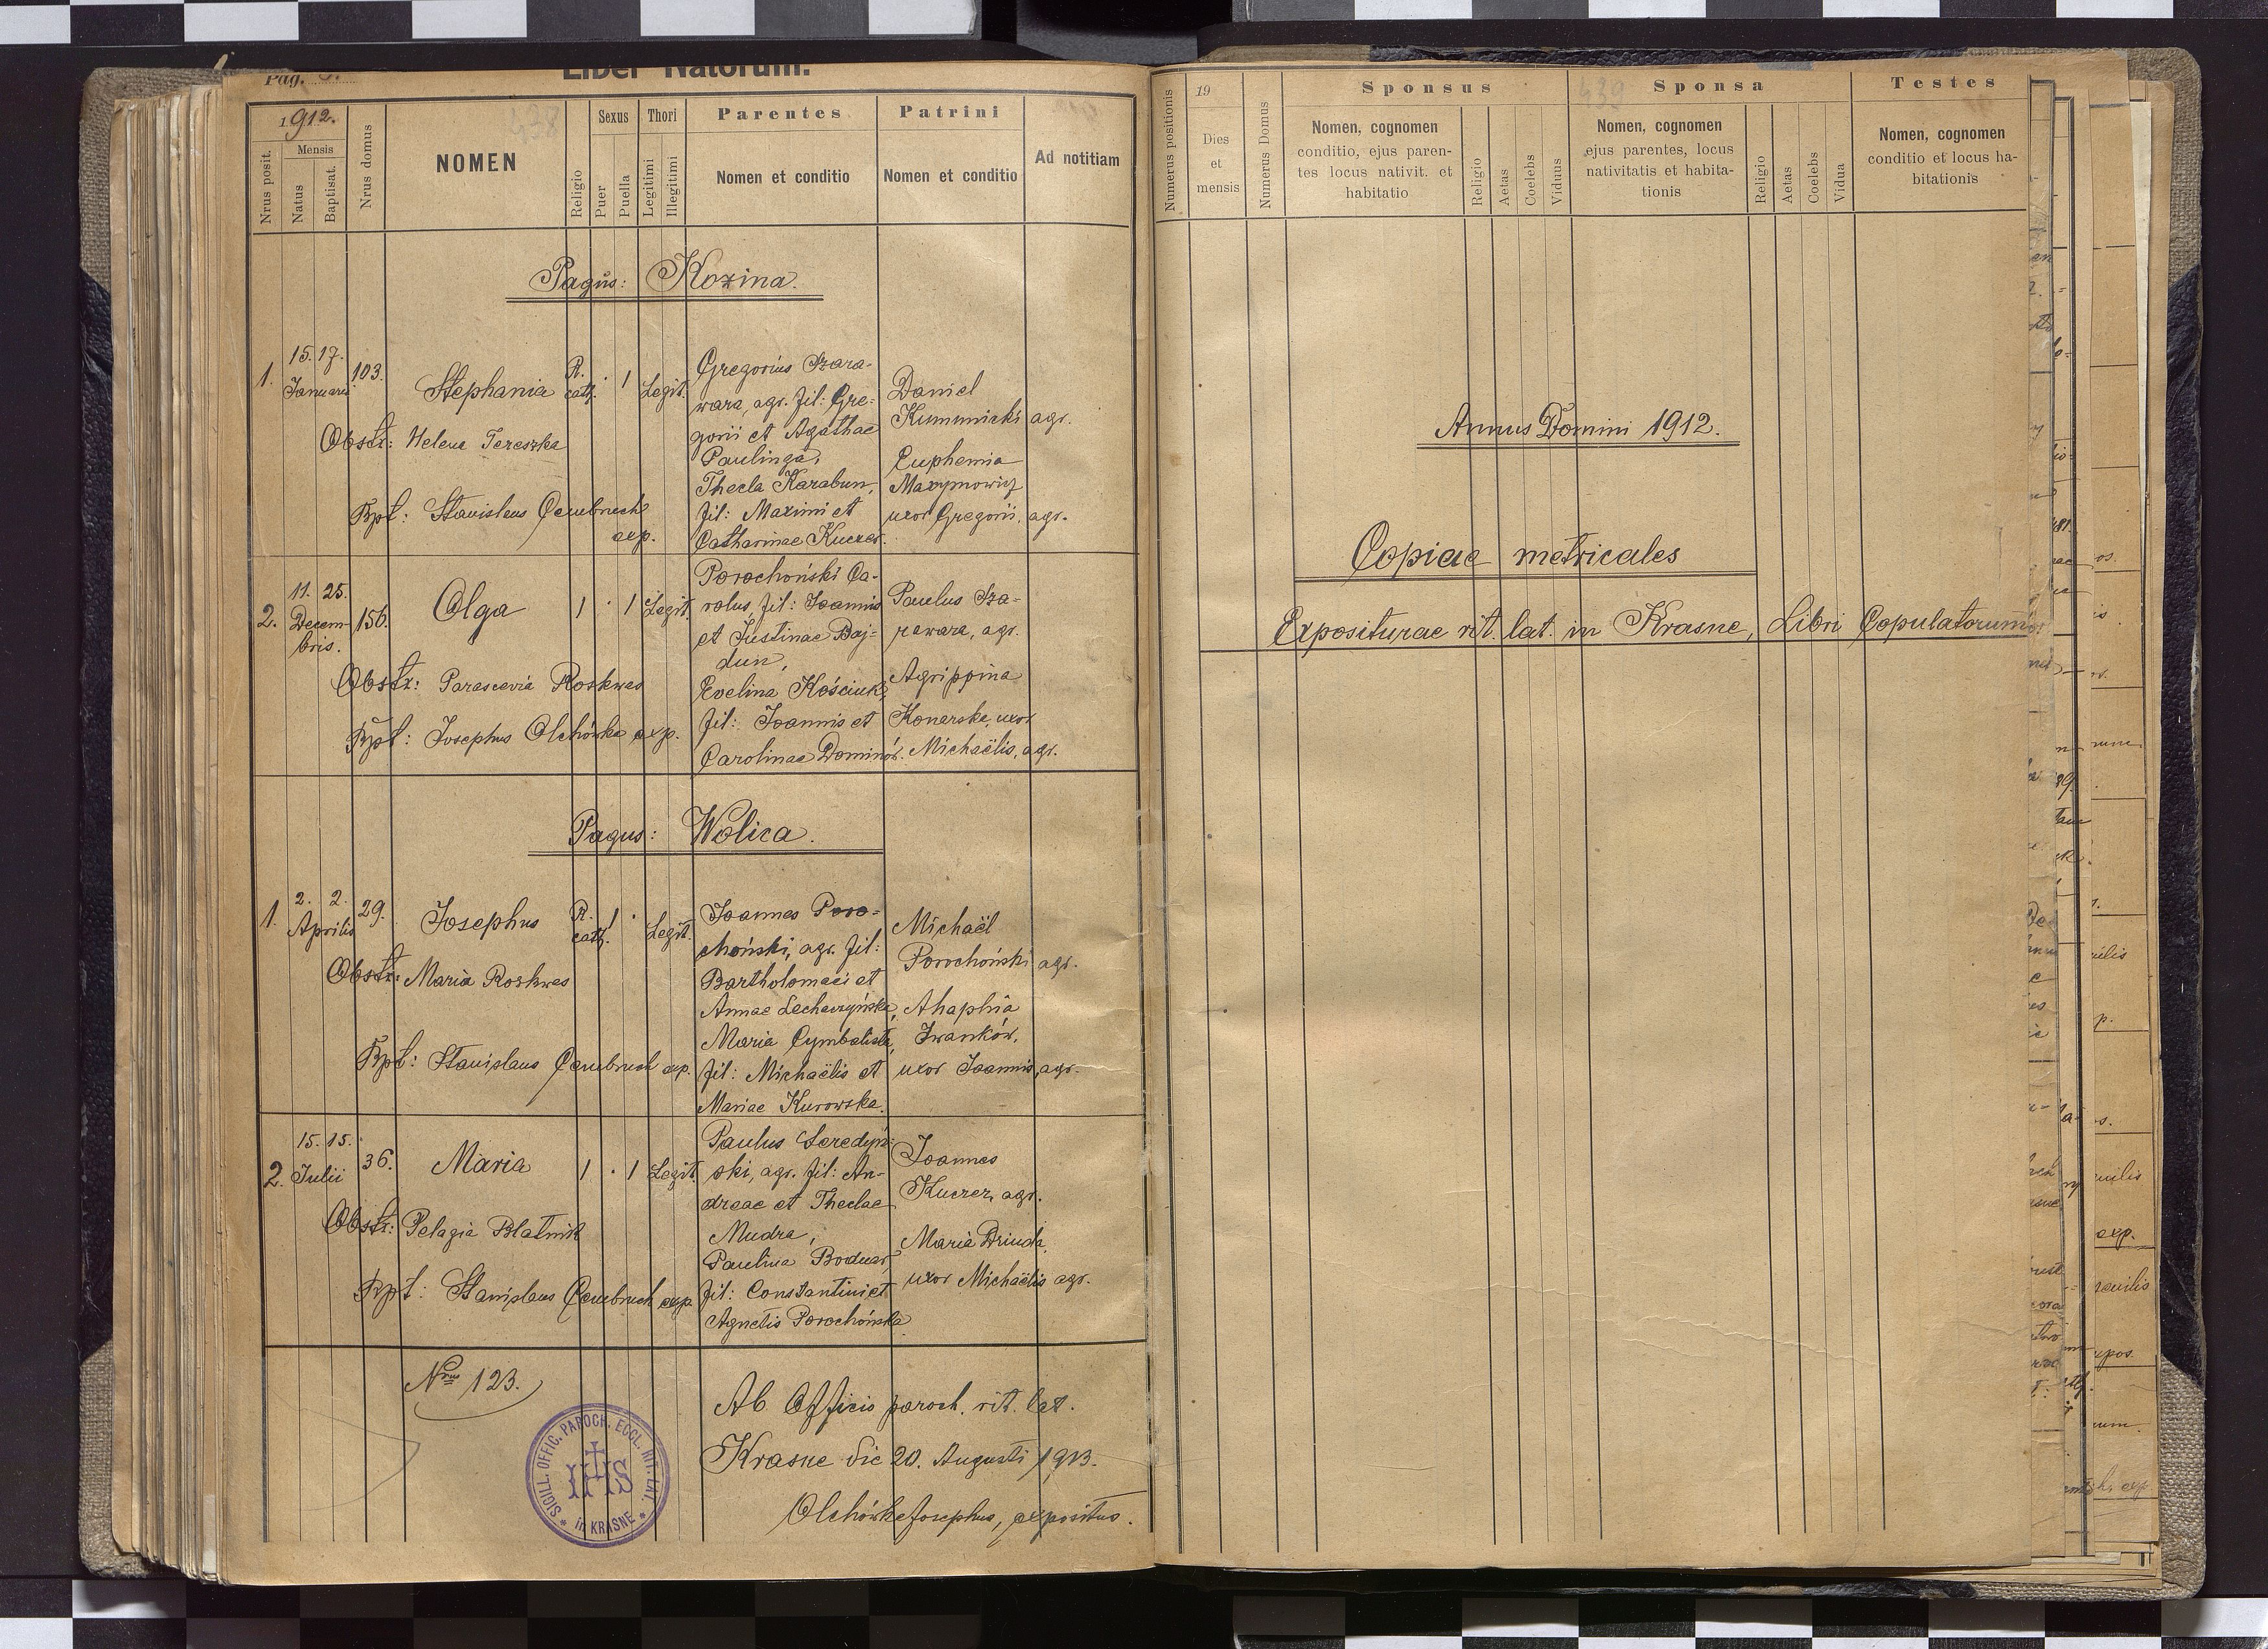 Pag.
Liber Natorum.
1912.
Nrus posit.
Mensis
Natus
Baptisat.
Nrus domus
438
NOMEN
Religio
Sexus
Puer
Puella
Thori
Legitimi
Illegitimi
Parentes
Nomen et conditio
Patrini
Nomen et conditio
Ad notitiam
Pagus: Kozina.
1.
15. 17.
Januarii
103.
Stephania
R.
cath.
· 1
Legit.
Obstr: Helena Tereszka
Bpt: Stanislaus Cembruch
exp.
Gregorius Szara-
wara, agr. fil: Gre-
gorii et Agathae
Paulinga,
Thecla Karabun,
fil: Maximi et
Catharinae Kuczer.
Daniel
Kumunicki agr.
Euphemia
Maxymowicz
uxor Gregorii, agr.
2.
11. 25.
Decem-
bris.
156.
Olga
1 · 1
Legit.
Obstr: Parascevia Roskwas
Bpt: Josephus Olchówka exp.
Porochoński Ca-
rolus, fil: Joannis
et Justinae Baj-
dun,
Evelina Kościuk,
fil: Joannis et
Carolinae Dominór.
Paulus Sza-
rawara, agr.
Agrippina
Konarska, uxor
Michaëlis, agr.
Pagus: Wolica.
1.
2. 2.
Aprilis
29.
Josephus
R.
cath.
1 ·
Legit.
Obstr: Maria Roskwas
Bpt: Stanislaus Cembruch exp.
Joannes Poro-
choński, agr. fil:
Bartholomaei et
Annae Lechaczyńska,
Maria Cymbalista,
fil: Michaëlis et
Mariae Kurowska.
Michaël
Porochoński agr.
Ahaphia
Iwanków,
uxor Joannis, agr.
2.
15. 15.
Julii
36.
Maria
1 · 1
Legit.
Obstr: Pelagia Blatnik
Bpt: Stanislaus Cembruch exp.
Paulus Seredyń-
ski, agr. fil: An-
dreae et Theclae
Mudra,
Paulina Bodnar,
fil: Constantini et
Agnetis Porochońska
Joannes
Kuczer, agr.
Maria Driuda,
uxor Michaëlis agr.
Nrus 123.
SIGILL. OFFIC. PAROCH. ECCL. RIT. LAT.
IHS
* in KRASNE *
Ab Officio paroch. rit. lat.
Krasne die 20. Augusti 1913.
Olchówka Josephus, expositus.
Numerus positionis
19
Dies
et
mensis
Numerus Domus
Sponsus
Nomen, cognomen
conditio, ejus paren-
tes locus nativit. et
habitatio
Religio
Aetas
Coelebs
Viduus
439
Sponsa
Nomen, cognomen
ejus parentes, locus
nativitatis et habita-
tionis
Religio
Aetas
Coelebs
Vidua
Testes
Nomen, cognomen
conditio et locus ha-
bitationis
Annus Domini 1912.
Copiae metricales
Expositurae rit. lat. in Krasne, Libri Copulatorum